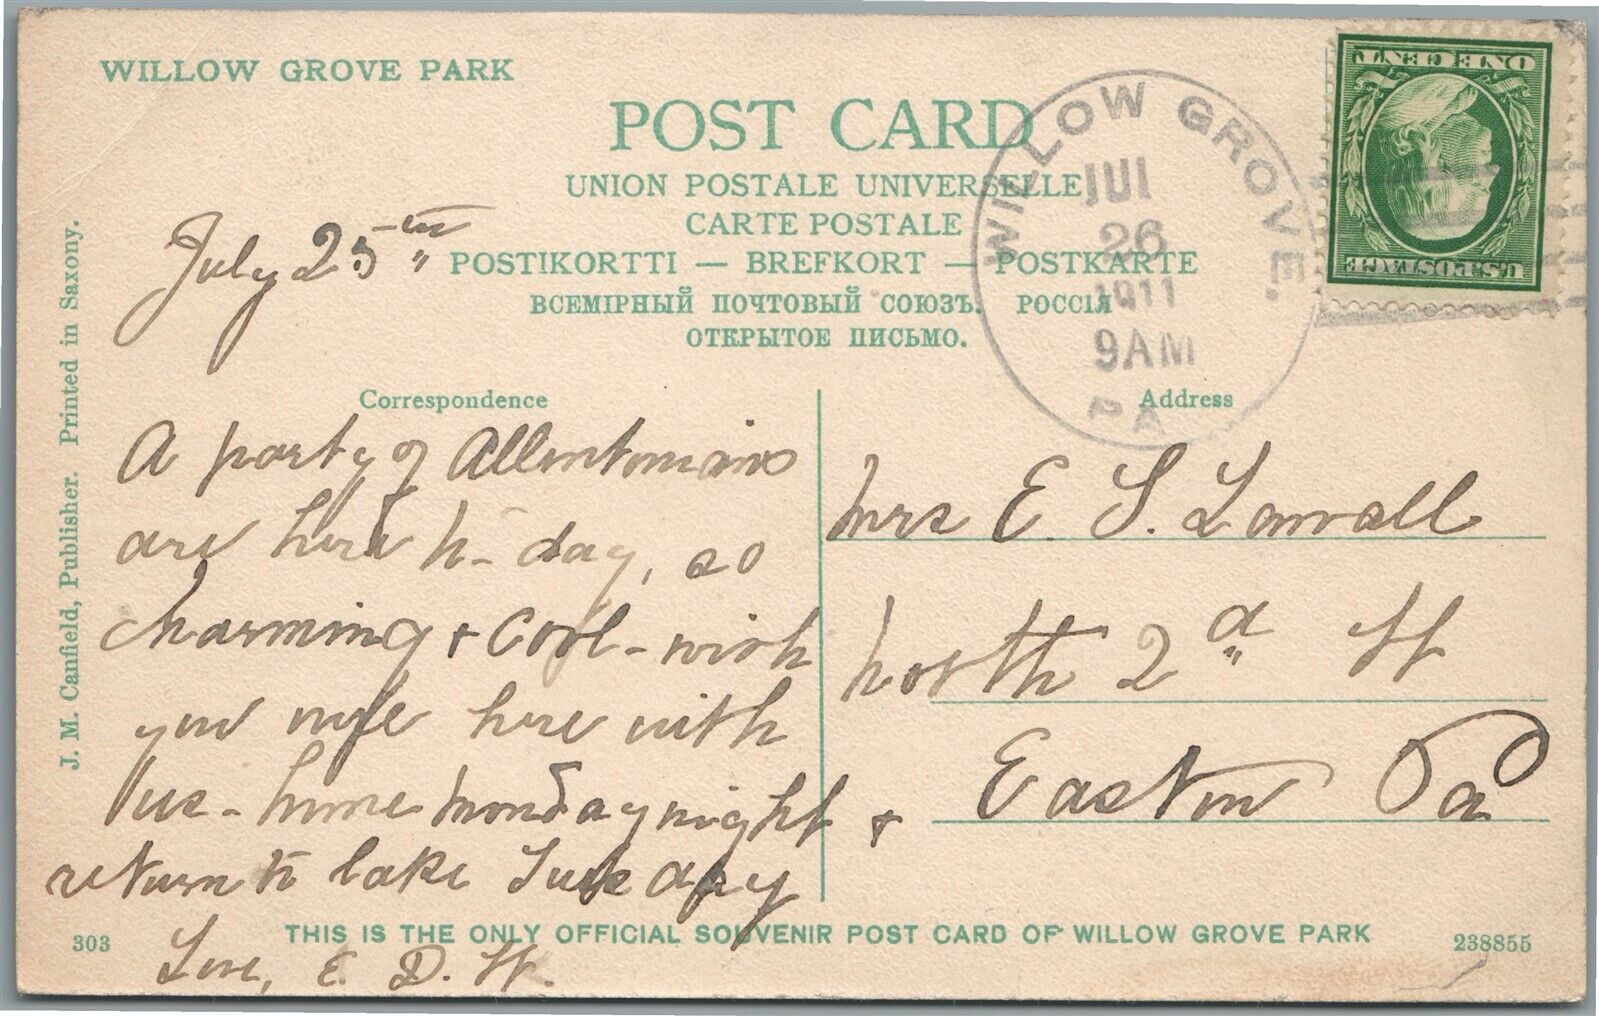 WILLOW GROVE PARK
POST CARD
UNION POSTALE UNIVERSELLE
CARTE POSTALE
POSTIKORTTI — BREFKORT — POSTKARTE
ВСЕМІРНЫЙ ПОЧТОВЫЙ СОЮЗЪ. РОССІЯ
ОТКРЫТОЕ ПИСЬМО.
WILLOW GROVE.
JUL
26
1911
9AM
PA
ONE CENT
U.S. POSTAGE
J. M. Canfield, Publisher. Printed in Saxony.
July 25th
Correspondence
A party of Allentonians
are here to-day, so
charming & cool - wish
you were here with
us - home Monday night &
return to lake Tuesday
Love, E. D. H.
Address
Mrs E. S. Lawall
North 2d St
Easton Pa
303
THIS IS THE ONLY OFFICIAL SOUVENIR POST CARD OF WILLOW GROVE PARK
238855